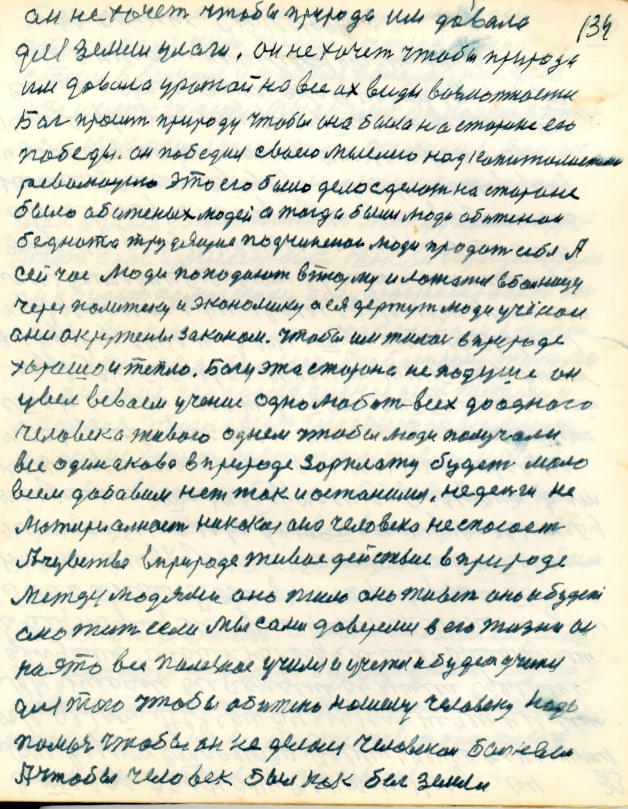 он не хочет чтобы природа им давала
134
для земли улаги, он не хочет чтобы природа
им давала урожай на все их виды возможности
Бог просит природу чтобы она была на стороне его
победы. он победил своею мыслию над капиталистами
революцию Это его было дело сделать на стороне
было обиженых людей а тогда были люди обиженои
беднота трудящие подчиненои люди продают себя А
сейчас люди попадают в тюрму и ложатся в больницу
через политеку и экономику а ея держут люди учёнои
они окружены законом. чтобы им жилос в природе
хорошо и тепло. Богу эта сторона не по душе он
учение одно любит всех до одного
человека живого одним чтобы люди получали
все одинаково в природе зарплату будет мало
всем добавим нет так и останимся, не денги не
материалност никакая она человека не спасает
А чувство в природе живое действие в природе
между людями оно жило оно живет оно и будет
оно жит если мы сами доверели в его жизни он
на это все полезное учился и учится и будет учится
для того чтобы обижено нашему человеку надо
помоч чтобы он не делался человеком болеть
А чтобы человек был как бог земли